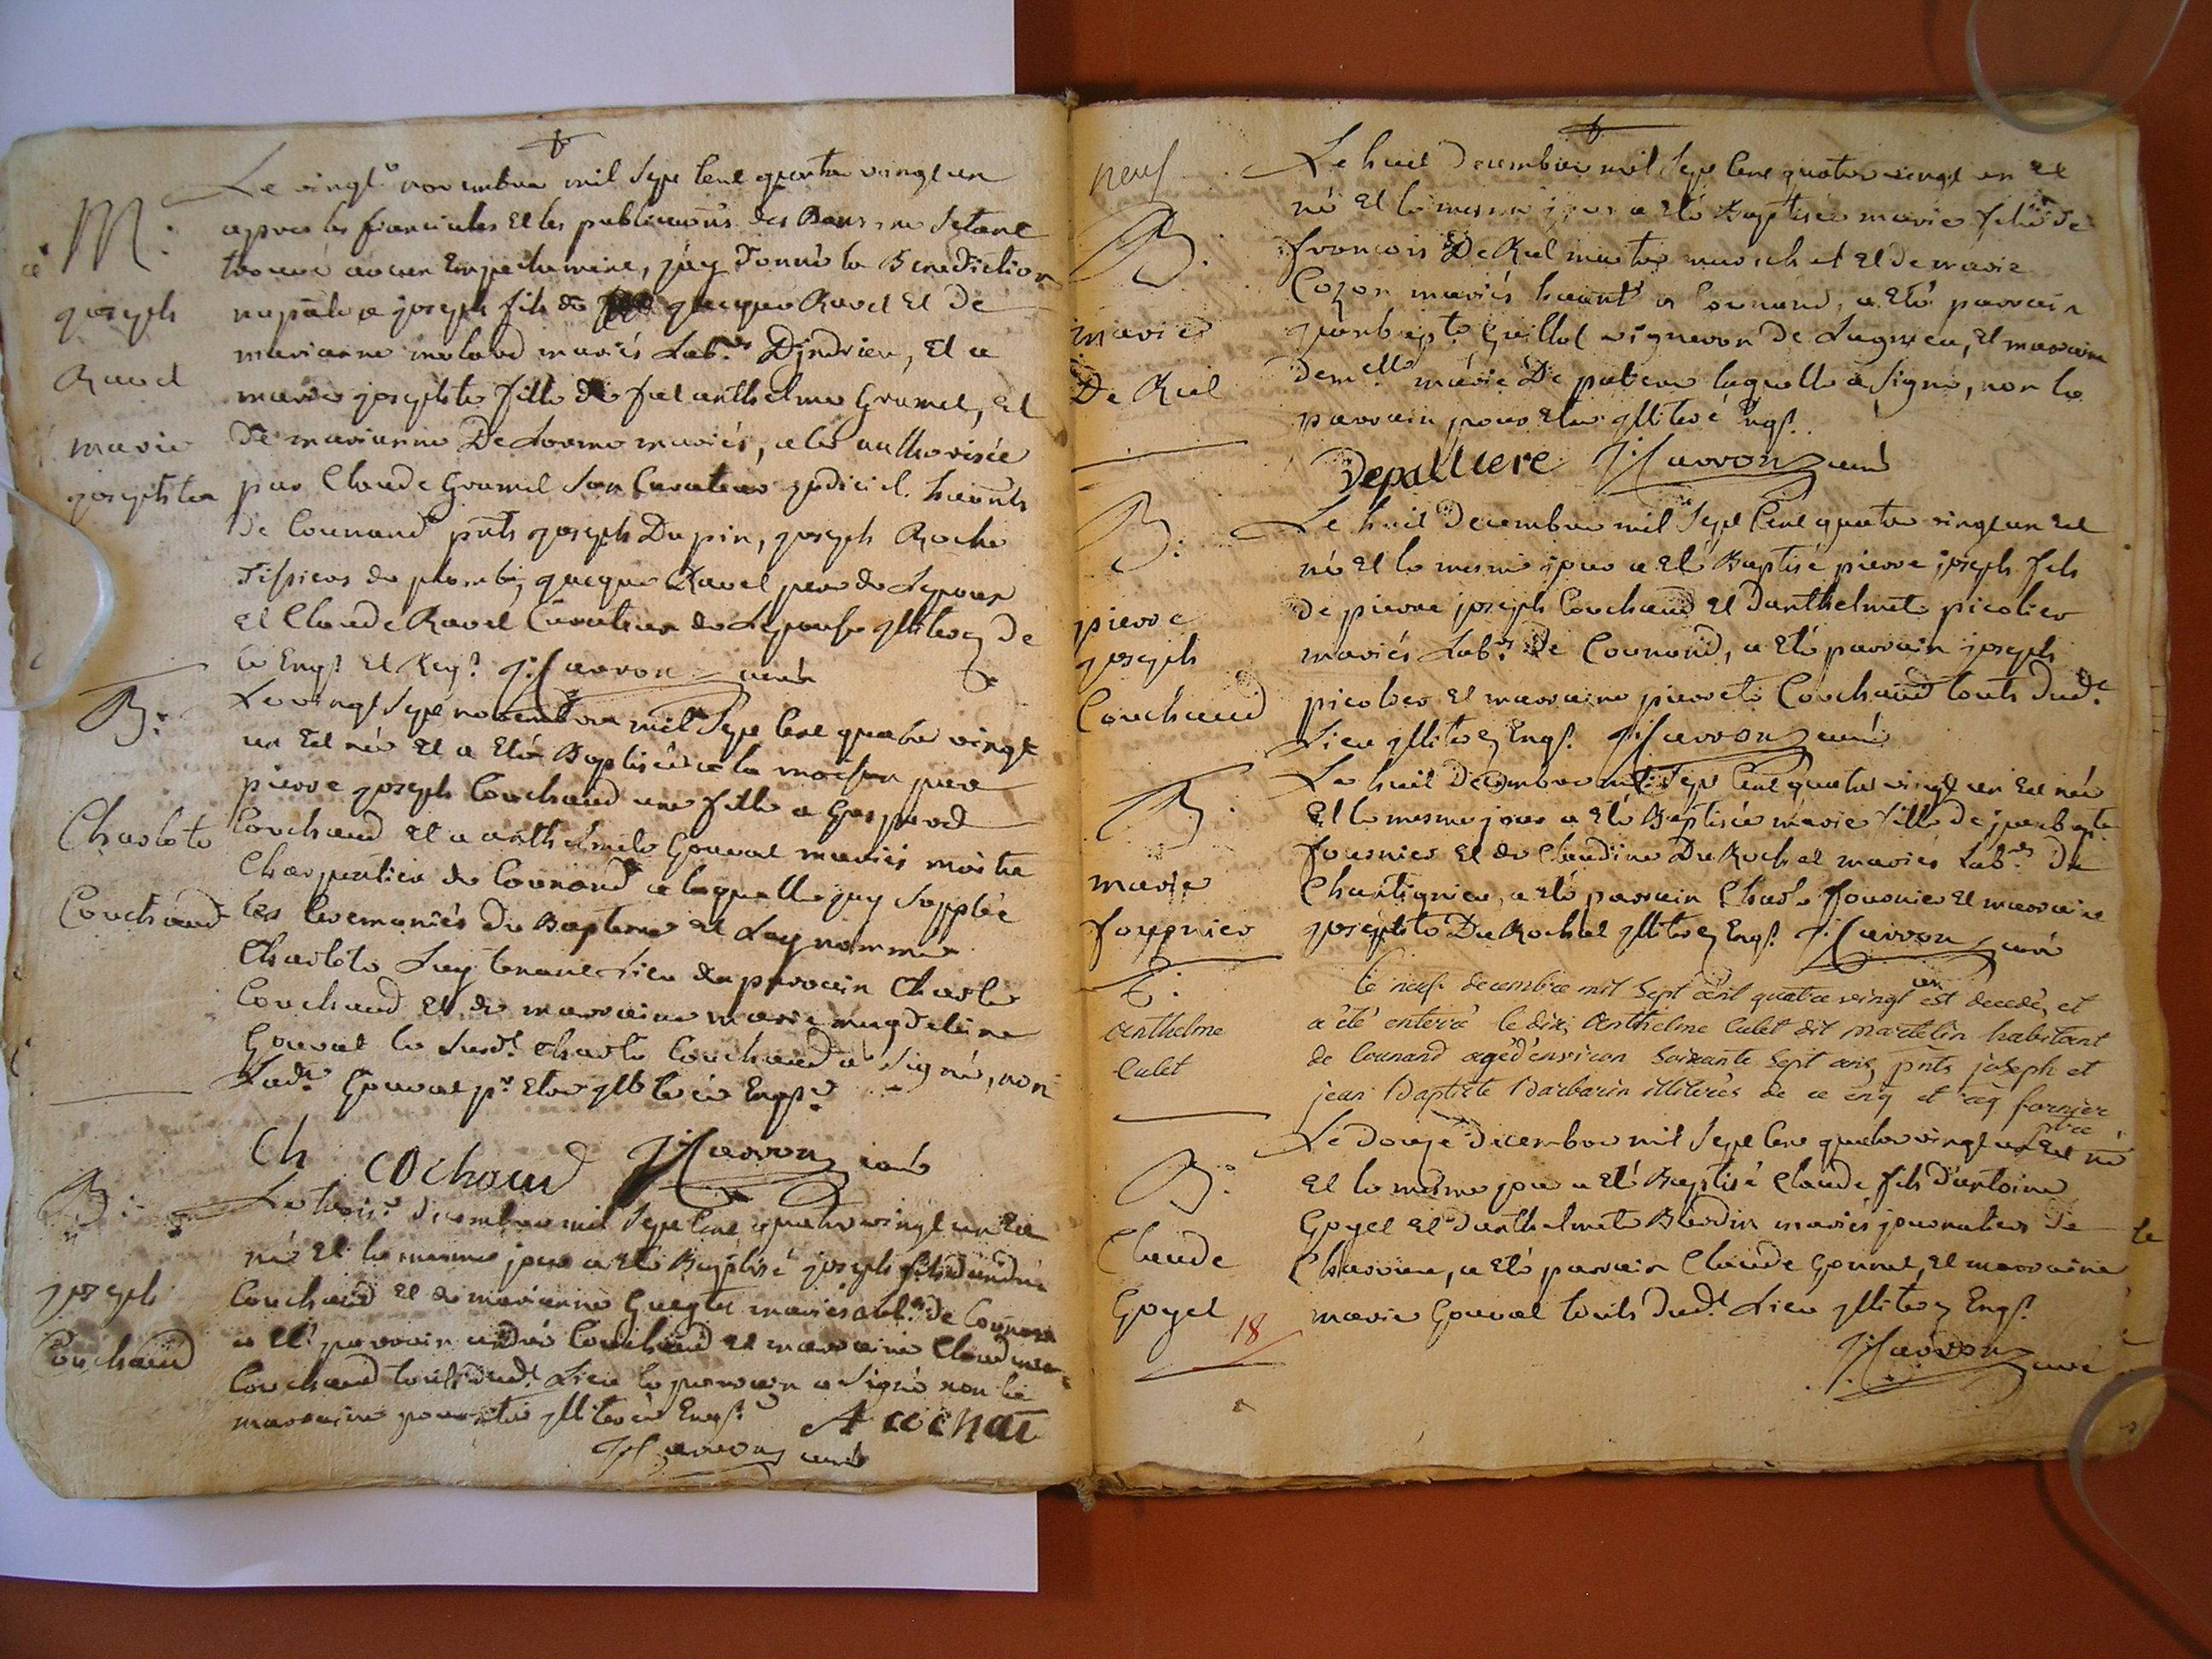 M:
joseph
Ravel
marie
josephte
Le vingt novembre mil sept cent quatre vingt un
apres les fiancialles et les publications des Bans ne setant
trouvé aucun Empechement, jay donné la Benediction
nuptale a joseph fils de jacque Ravel et de
marianne molard mariés Labrs Djndrieu, et a
marie josephte fille de fut anthelme Gramel, et
de marianne De Lorme mariés, a ce authorisée
par Claude Gramel son Curateur judiciel. habnts
de Counand pnts joseph Dupin, joseph Roche
Tissiers de plombj jacque Ravel pere de Lepoux
et Claude Ravel Curateur de Lepouse jlliterez de
ce Engs et Reqs J: Carron curé
B:
Charlote
Couchaud
Le vingt sept novembre mil sept cent quatre vingt
un est née et a eté Baptisée a la maison par
pierre joseph Couchaud une fille a Gaspard
Couchaud et a anthelmete Goural mariés maitre
Charpentier de Counand a laquelle jay supplée
les ceremoniés du Bapteme et Lay nommée
Charlote Luy tenant Lieu de parrain Charle
Couchaud et de marraine marie magdeleine
Goural le susdt Charle Couchaud a signé, non
Ladte Goural pr Etre jlliterée Engse
Ch COchaud J: Carron curé
B:
joseph
Couchaud
Le troise decembre mil sept cent quatre vingt un est
né et le mesme jour a eté Baptisé joseph fils dandré
Couchaud et de marianne mariés Labrs de Counand
a eté parrain andré Couchaud et marraine Claudine
Couchaud touts dudt Lieu le parrain a signé non la
marraine pour etre jlliterée Engse A cochat
J: Carron curé
neuf
B:
marie
De Rul
Le huit decembre mil sept cent quatre vingt un est
né et le mesme jour a eté Baptisée marie fille de
francois De Rul maitre et de marie
Cozon mariés habnts a Counand, a eté parrain
jeanbapte Guillot vigneron De Lagnieu, et marraine
demelle marie De paliere laquelle a signé, non le
parrain pour etre jlliteré Engs
Depalliere J: Carron curé
B:
pierre
joseph
Couchaud
Le huit decembre mil sept cent quatre vingt un est
né et le mesme jour a eté Baptisé pierre joseph fils
de pierre joseph Couchaud et danthelmete picolier
mariés Labrs de Counand, a eté parrain joseph
picolier et marraine pierrete Couchaud touts dudt
Lieu jlliterez Engs J: Carron curé
B:
marie
fournier
Le huit decembre mil sept cent quatre vingt un est née
et le mesme jour a eté Baptisée marie fille de jeanbapte
fournier et de Claudine Du Rochat mariés Labrs de
Chantignieu, a eté parrain Charle fournier et marraine
josephte Du Rochat jlliterez Engs J: Carron curé
anthelme
Culet
le neuf decembre mil sept cent quatre vingt un est decedé, et
a été enterré le dix, anthelme Culet dit martelin habitant
de Counand agé d'environ soixante sept ans, pnts joseph et
jean Baptiste Barbarin illiterés de ce enq et req fornier
ptre
B:
Claude
Goyet
18
Le douze decembre mil sept cent quatre vingt un est né
et le mesme jour a eté Baptisé Claude fils d'antoine
Goyet et danthelmete Berdin mariés journalier de
Charvieu, a eté parrain Claude Gonnet, et marraine
marie Goural touts dudt Lieu jlliterez Engs
J: Carron curé